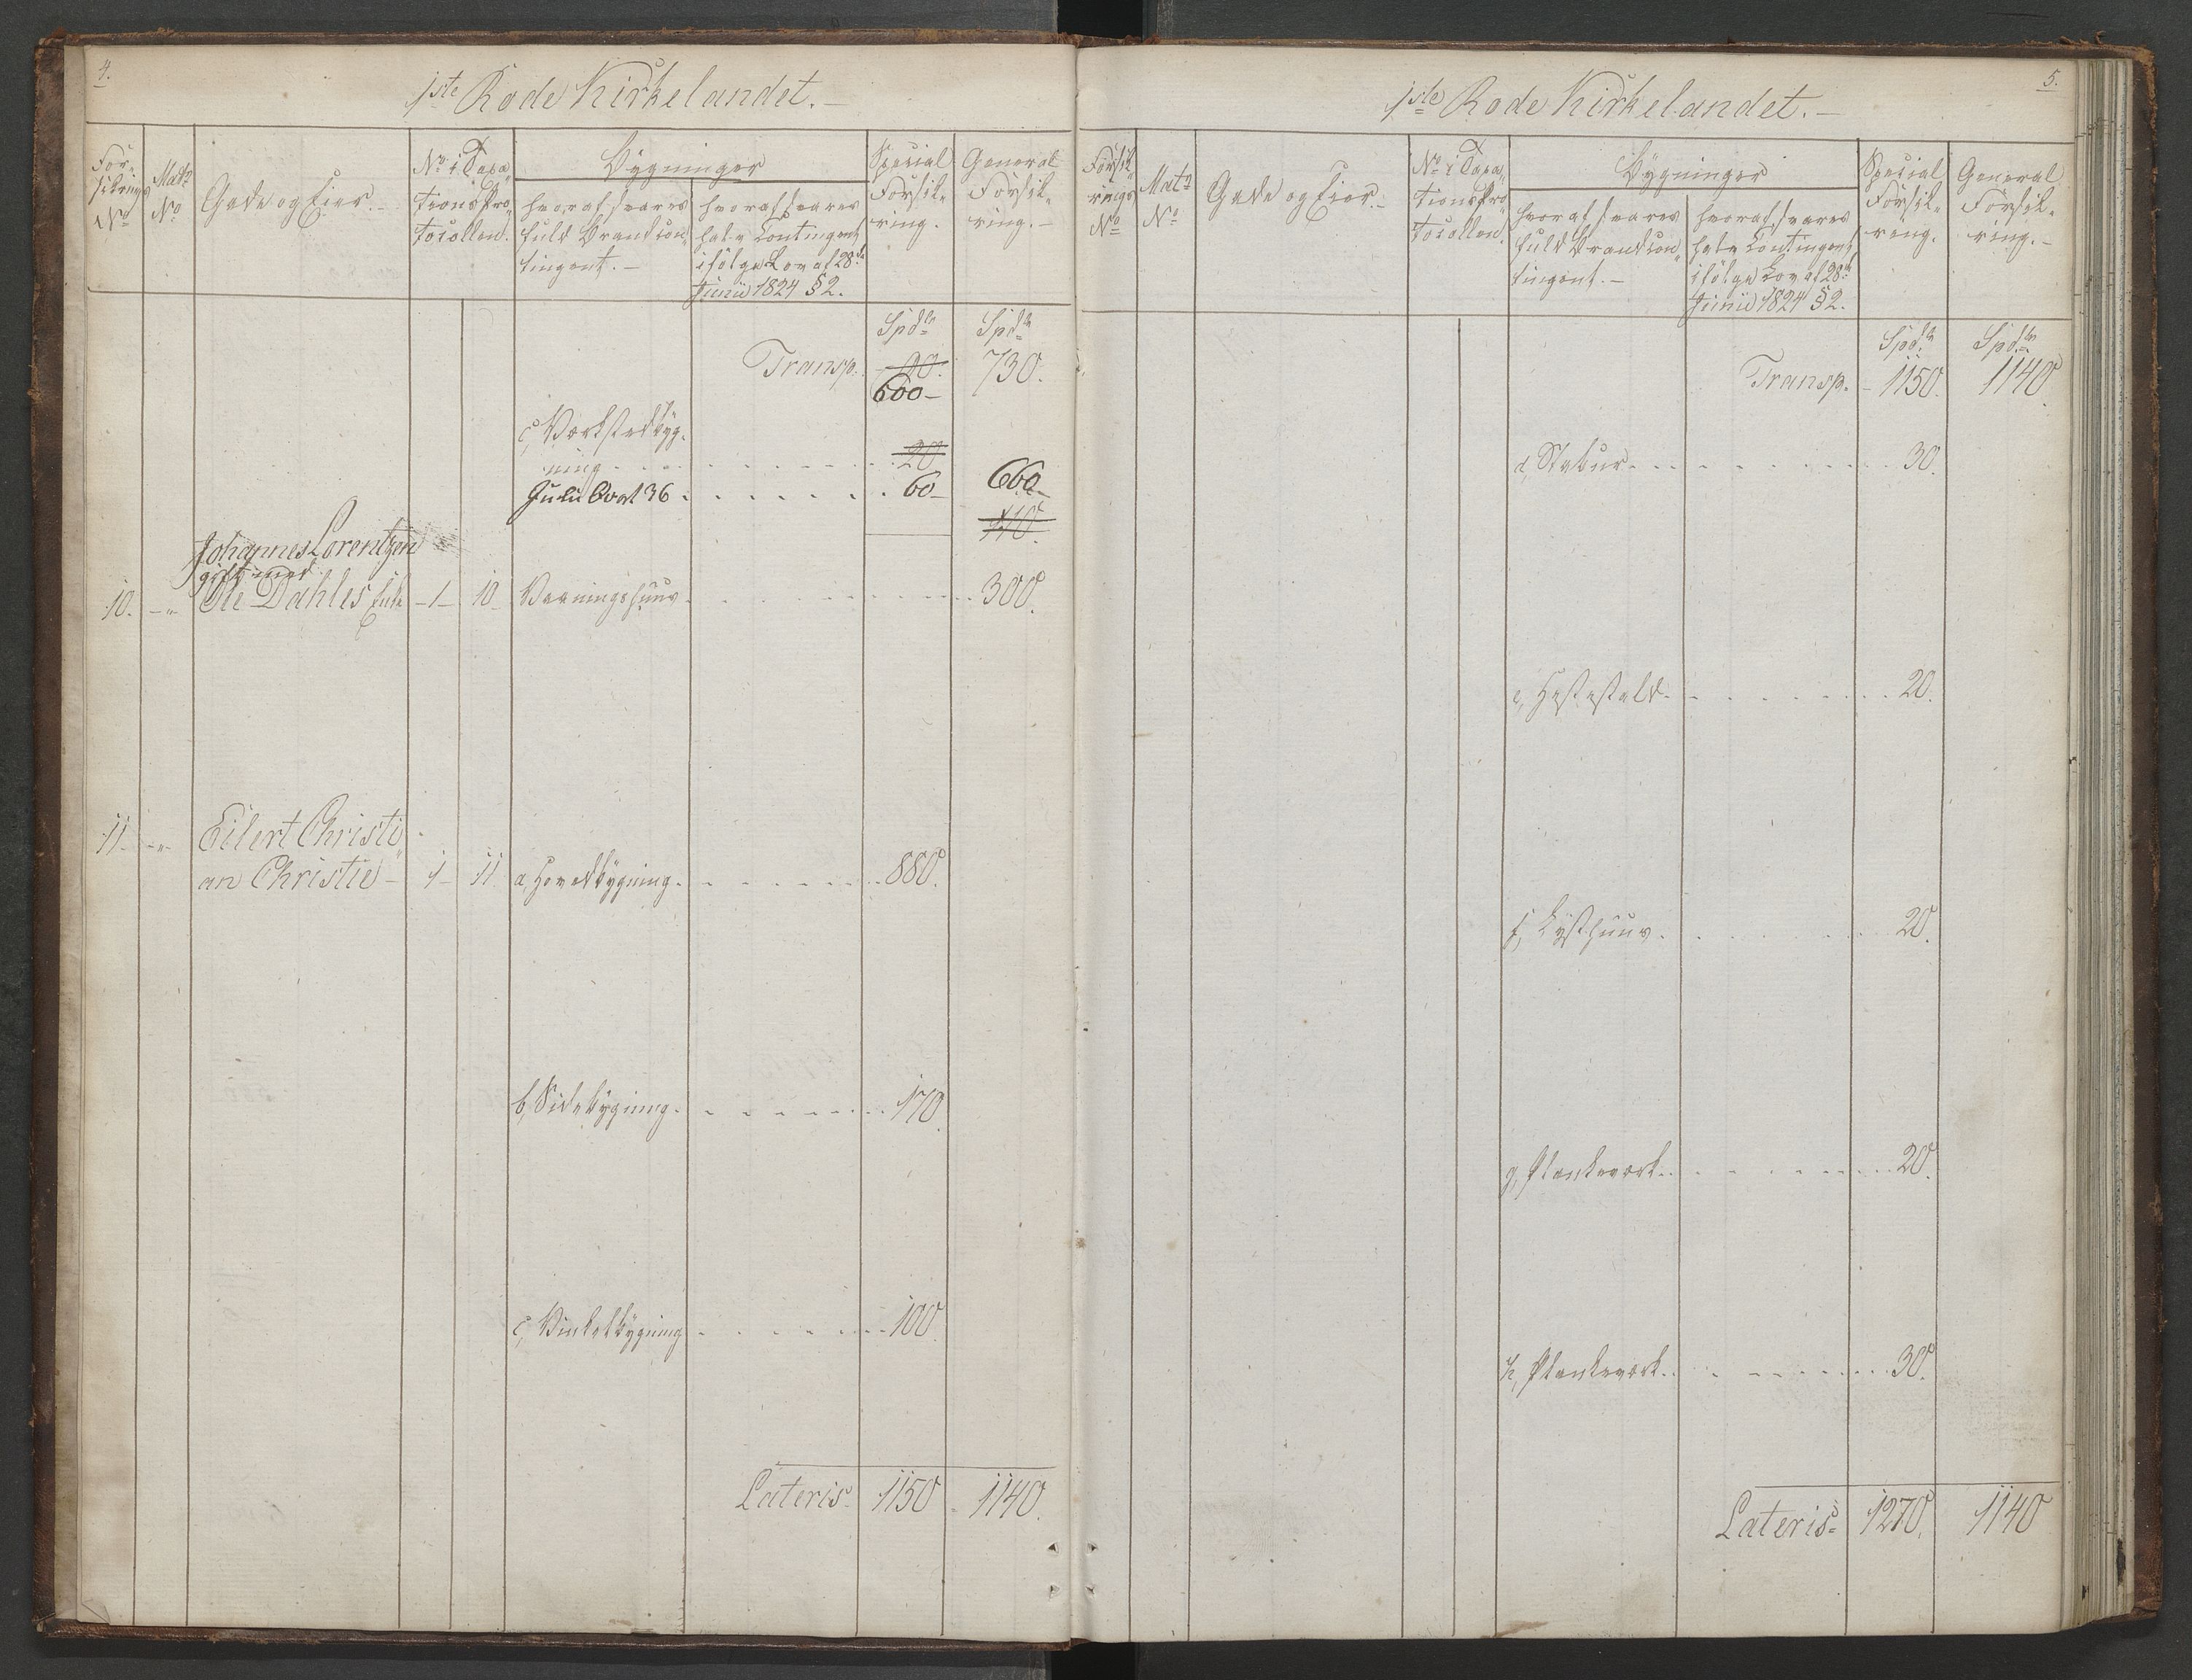 4.
1ste Rode Kirkelandet.
For-
sikrings
No
Matr
No
Gade og Eier.
No i Taxa-
tions Pro-
tocollen.
Bygninger
hvoraf svares
fuld Brandcon-
tingent.
hvoraf svares
halv Contingent
ifølge Lov af 28de
Junii 1824 § 2.
Special
Forsik-
ring.
General
Forsik-
ring.
Spdlr
Spdlr
Transp. 90. 730.
600
c, Værkstedbyg-
ning 20
60 660
110.
Johannes Lorentzen
gift med
10. " Ole Dahles Enke 1 10 Vaaningshuus 300.
11 " Eilert Christi-
an Christie 1 11 a, Hovedbygning 880.
b, Sidebygning 170.
c, Vinkelbygning 100.
Lateris 1150 1140.
5.
1ste Rode Kirkelandet.
Forsik-
rings
No
Matr
No
Gade og Eier.
No i Taxa-
tions Pro-
tocollen.
Bygninger
hvoraf svares
fuld Brandcon-
tingent.
hvoraf svares
halv Contingent
ifølge Lov af 28de
Junii 1824 § 2.
Special
Forsik-
ring.
General
Forsik-
ring.
Spdlr
Spdlr
Transp. 1150. 1140.
d, Stabur 30.
e, Hestestald 20.
f, Lysthuus 20.
g, Plankeværk 20.
h, Plankeværk 30.
Lateris 1270. 1140